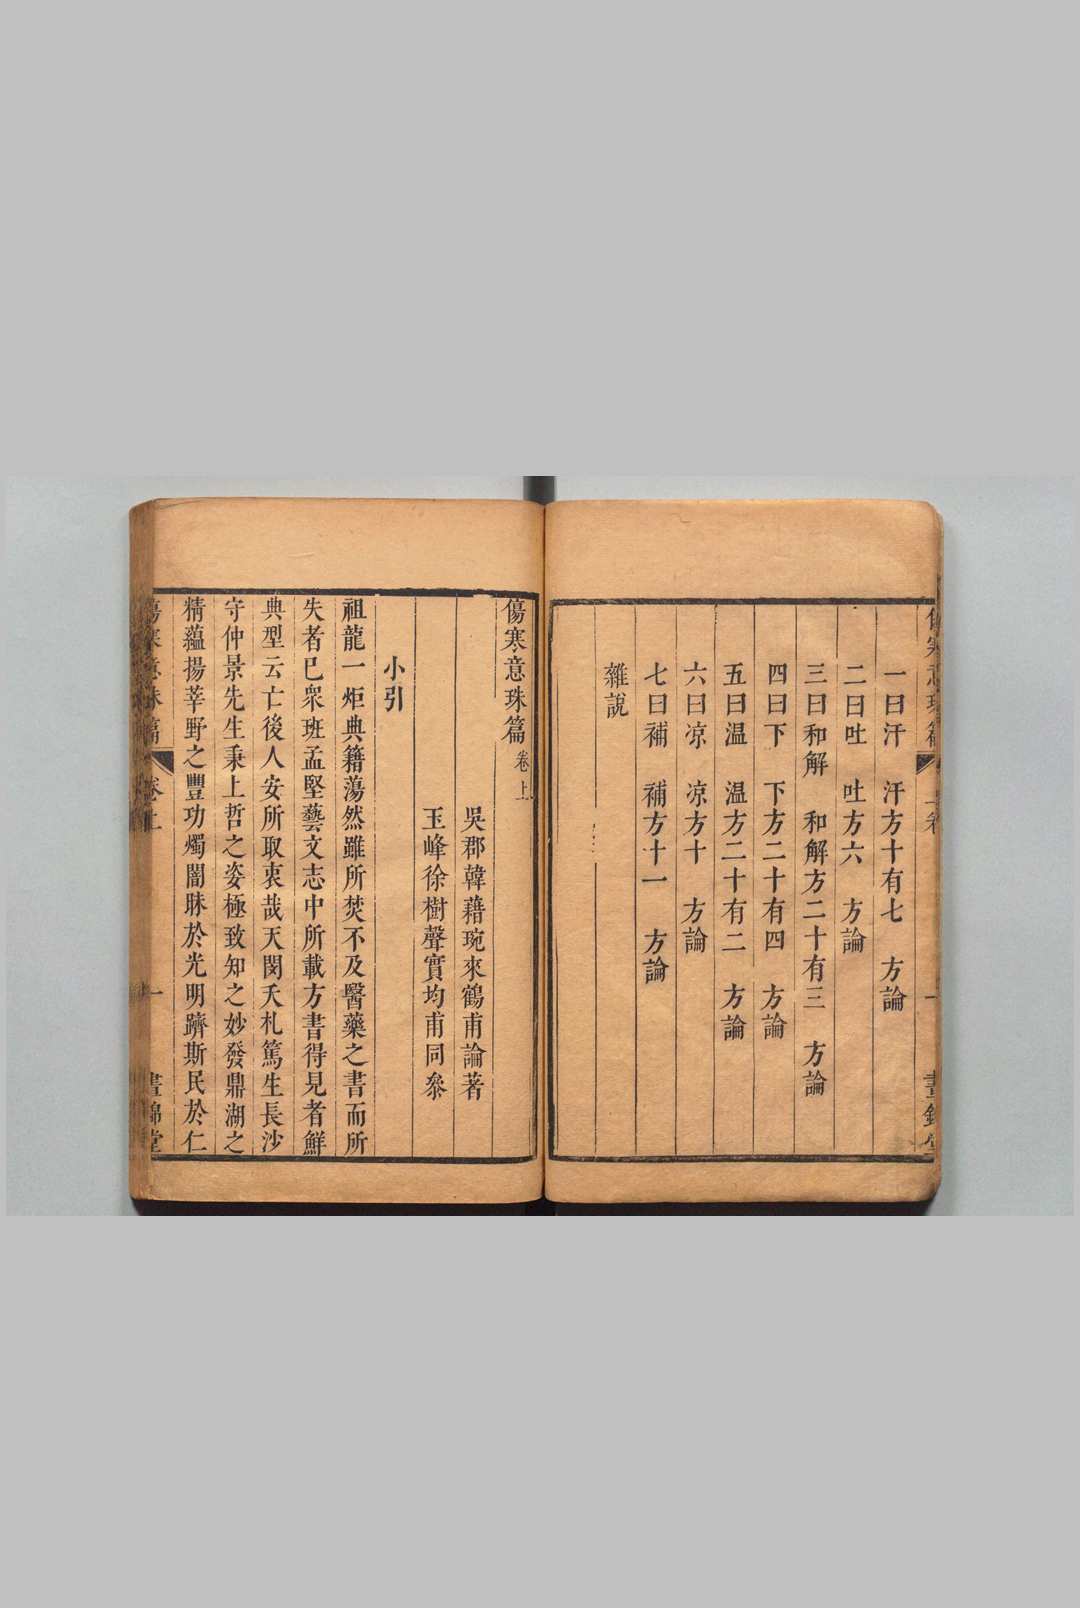 傷寒意珠篇 上卷 一 晝錦堂
一曰汗 汗方十有七 方論
二曰吐 吐方六 方論
三曰和解 和解方二十有三 方論
四曰下 下方二十有四 方論
五曰温 温方二十有二 方論
六曰凉 凉方十 方論
七曰補 補方十一 方論
雜說
傷寒意珠篇卷上
吳郡韓藉琬來鶴甫論著
玉峰徐樹聲實均甫同叅
小引
祖龍一炬典籍蕩然雖所焚不及醫藥之書而所
失者已衆班孟堅藝文志中所載方書得見者鮮
典型云亡後人安所取衷哉天閔夭札篤生長沙
守仲景先生秉上哲之姿極致知之妙發鼎湖之
精蘊揚莘野之豐功燭闇昧於光明躋斯民於仁
傷寒意珠篇 卷上 一 晝錦堂